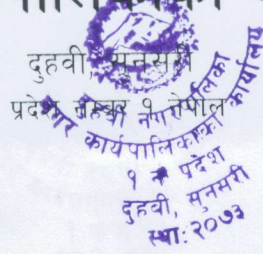 दुहवी, सुनसरी
प्रदेश नम्बर १ नेपाल
दुहवी नगरपालिका
नगर कार्यपालिकाको कार्यालय
१ नं प्रदेश
दुहवी, सुनसरी
स्था: २०७३